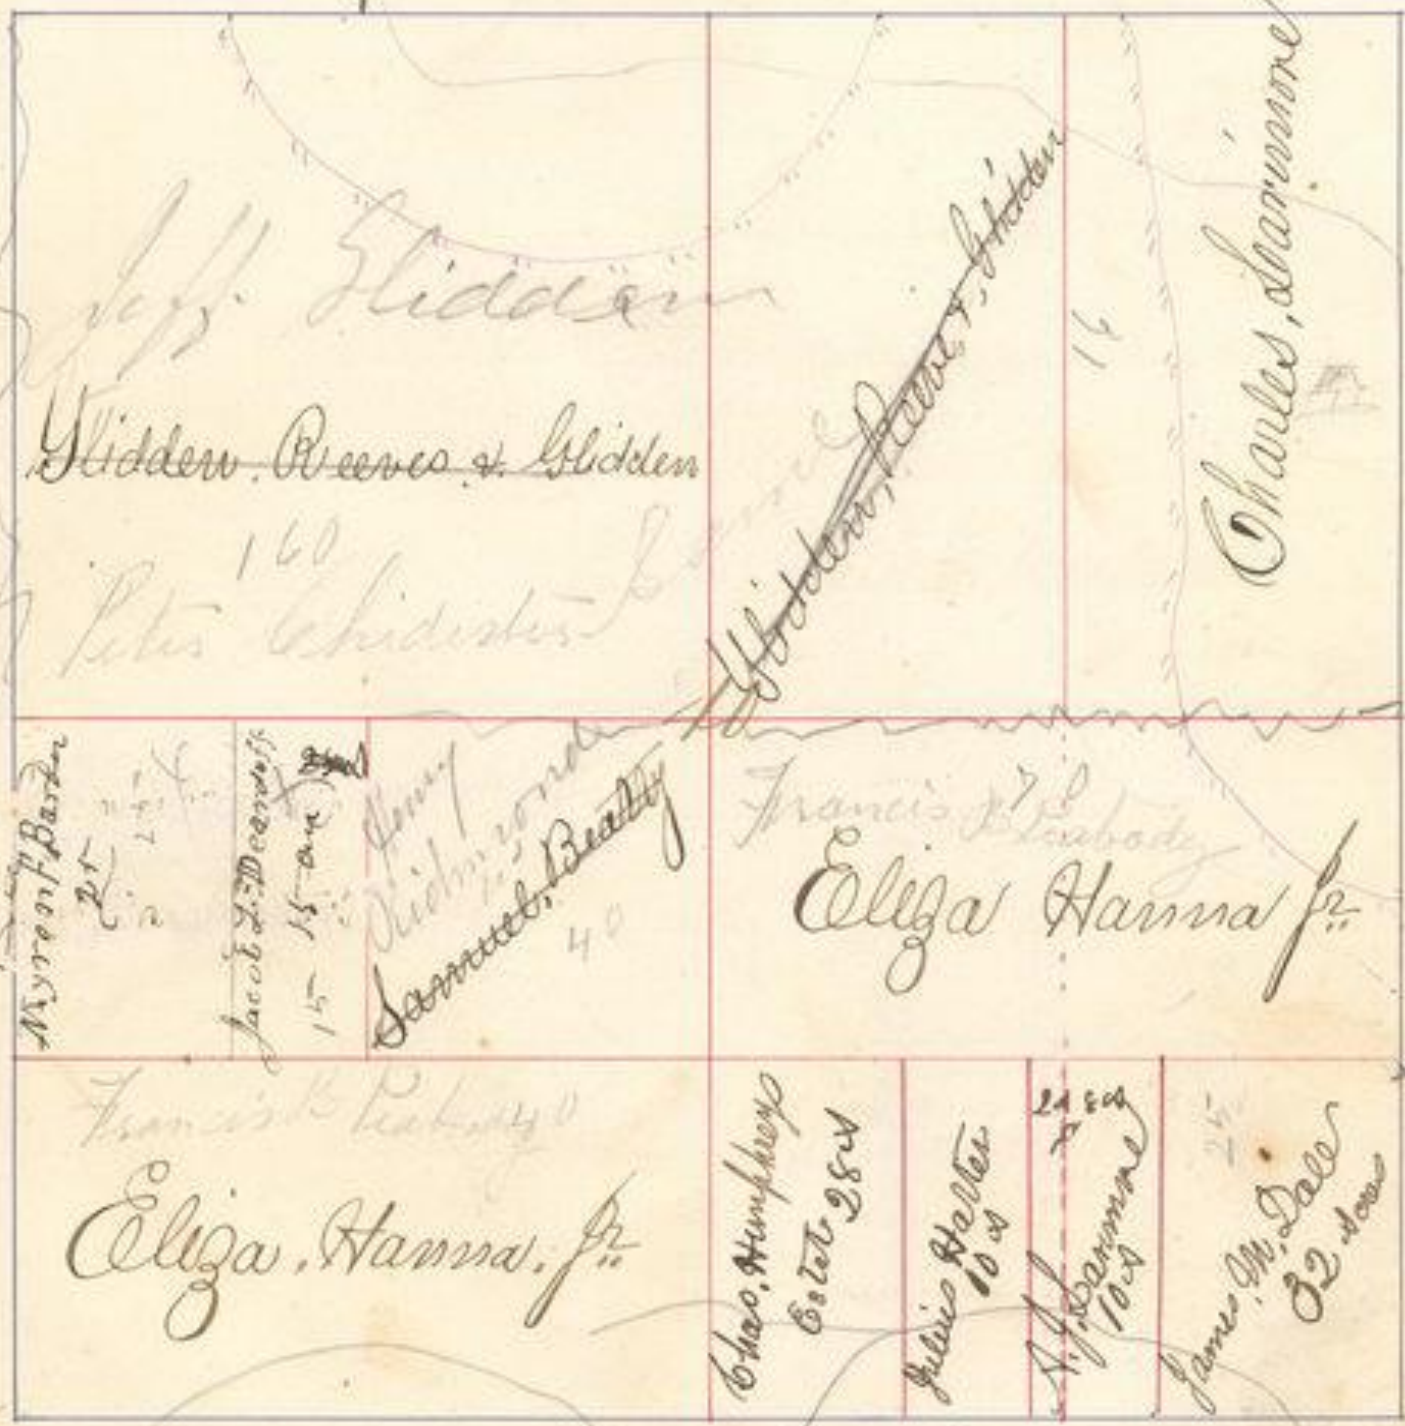 Jeff Glidden
Glidden. Reeves & Glidden
160
Glidden, Reeves &, Glidden
16
Charles, Larimore
Myron H Barton
25
Jacob L. Deardoff
15
Henry
Richmond
Samuel, Beatty
40
Francis B Peabody
Eliza Hanna Jr.
Francis B Peabody 40
Eliza, Hanna, Jr.
Chas, Humphreys
Estate 28 A
Julius Harter
10 A
10 A
25
James, M, Dale
32 Acres